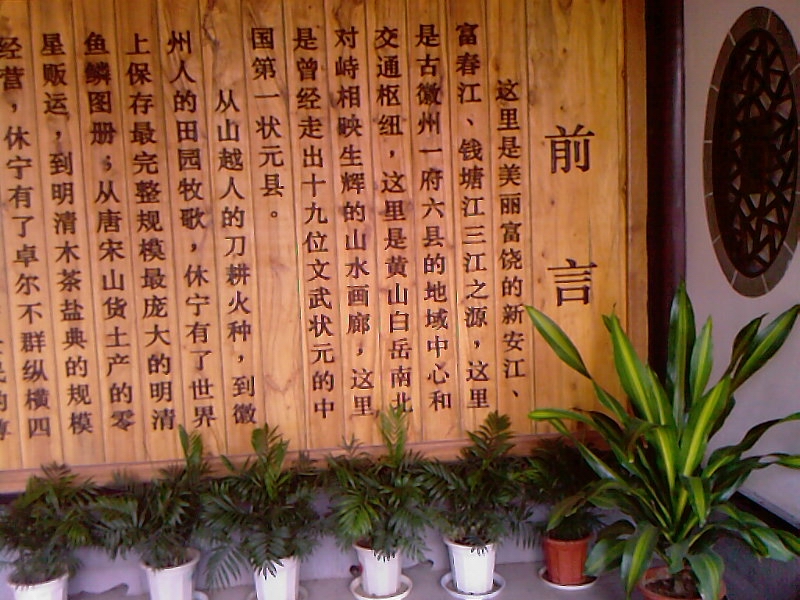 前言
这里是美丽富饶的新安江、
富春江、钱塘江三江之源，这里
是古徽州一府六县的地域中心和
交通枢纽，这里是黄山白岳南北
对峙相映生辉的山水画廊，这里
是曾经走出十九位文武状元的中
国第一状元县。
从山越人的刀耕火种，到徽
州人的田园牧歌，休宁有了世界
上保存最完整规模最庞大的明清
鱼鳞图册；从唐宋山货土产的零
星贩运，到明清木茶盐典的规模
经营，休宁有了卓尔不群纵横四